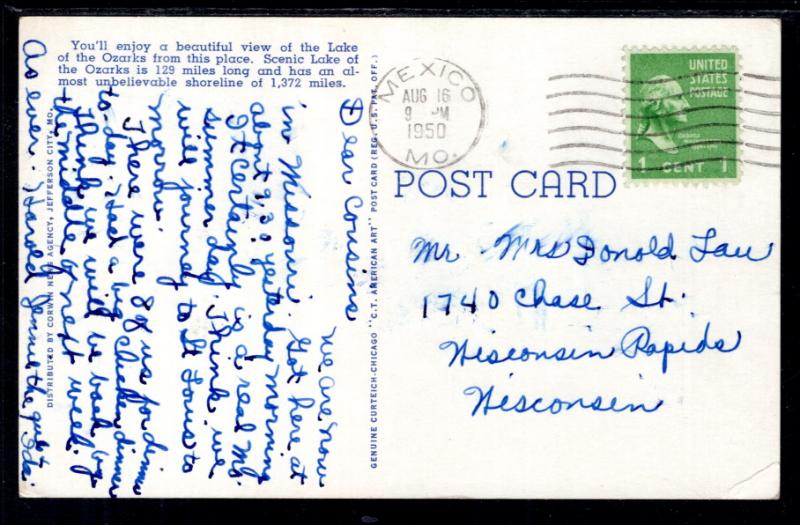 You'll enjoy a beautiful view of the Lake
of the Ozarks from this place. Scenic Lake of
the Ozarks is 129 miles long and has an al-
most unbelievable shoreline of 1,372 miles.
Dear Cousins
We are now
in Missouri. Got here at
about 9:30 yesterday morning
It certainly is a real Mo.
summer day. Think we
will journey to St Louis to
morrow.
There were 8 of us for dinner
to-day. Had a big chicken dinner
Think we will be back by
the middle of next week.
As ever. Harold Jennie the guest
DISTRIBUTED BY CORWIN NEWS AGENCY, JEFFERSON CITY, MO.
GENUINE CURTEICH-CHICAGO "C.T. AMERICAN ART" POST CARD (REG. U.S. PAT. OFF.)
MEXICO
AUG 16
9 PM
1950
MO.
UNITED
STATES
POSTAGE
1 CENT 1
POST CARD
Mr. Mrs Donold Lau
1740 Chase St.
Wisconsin Rapids
Wisconsin